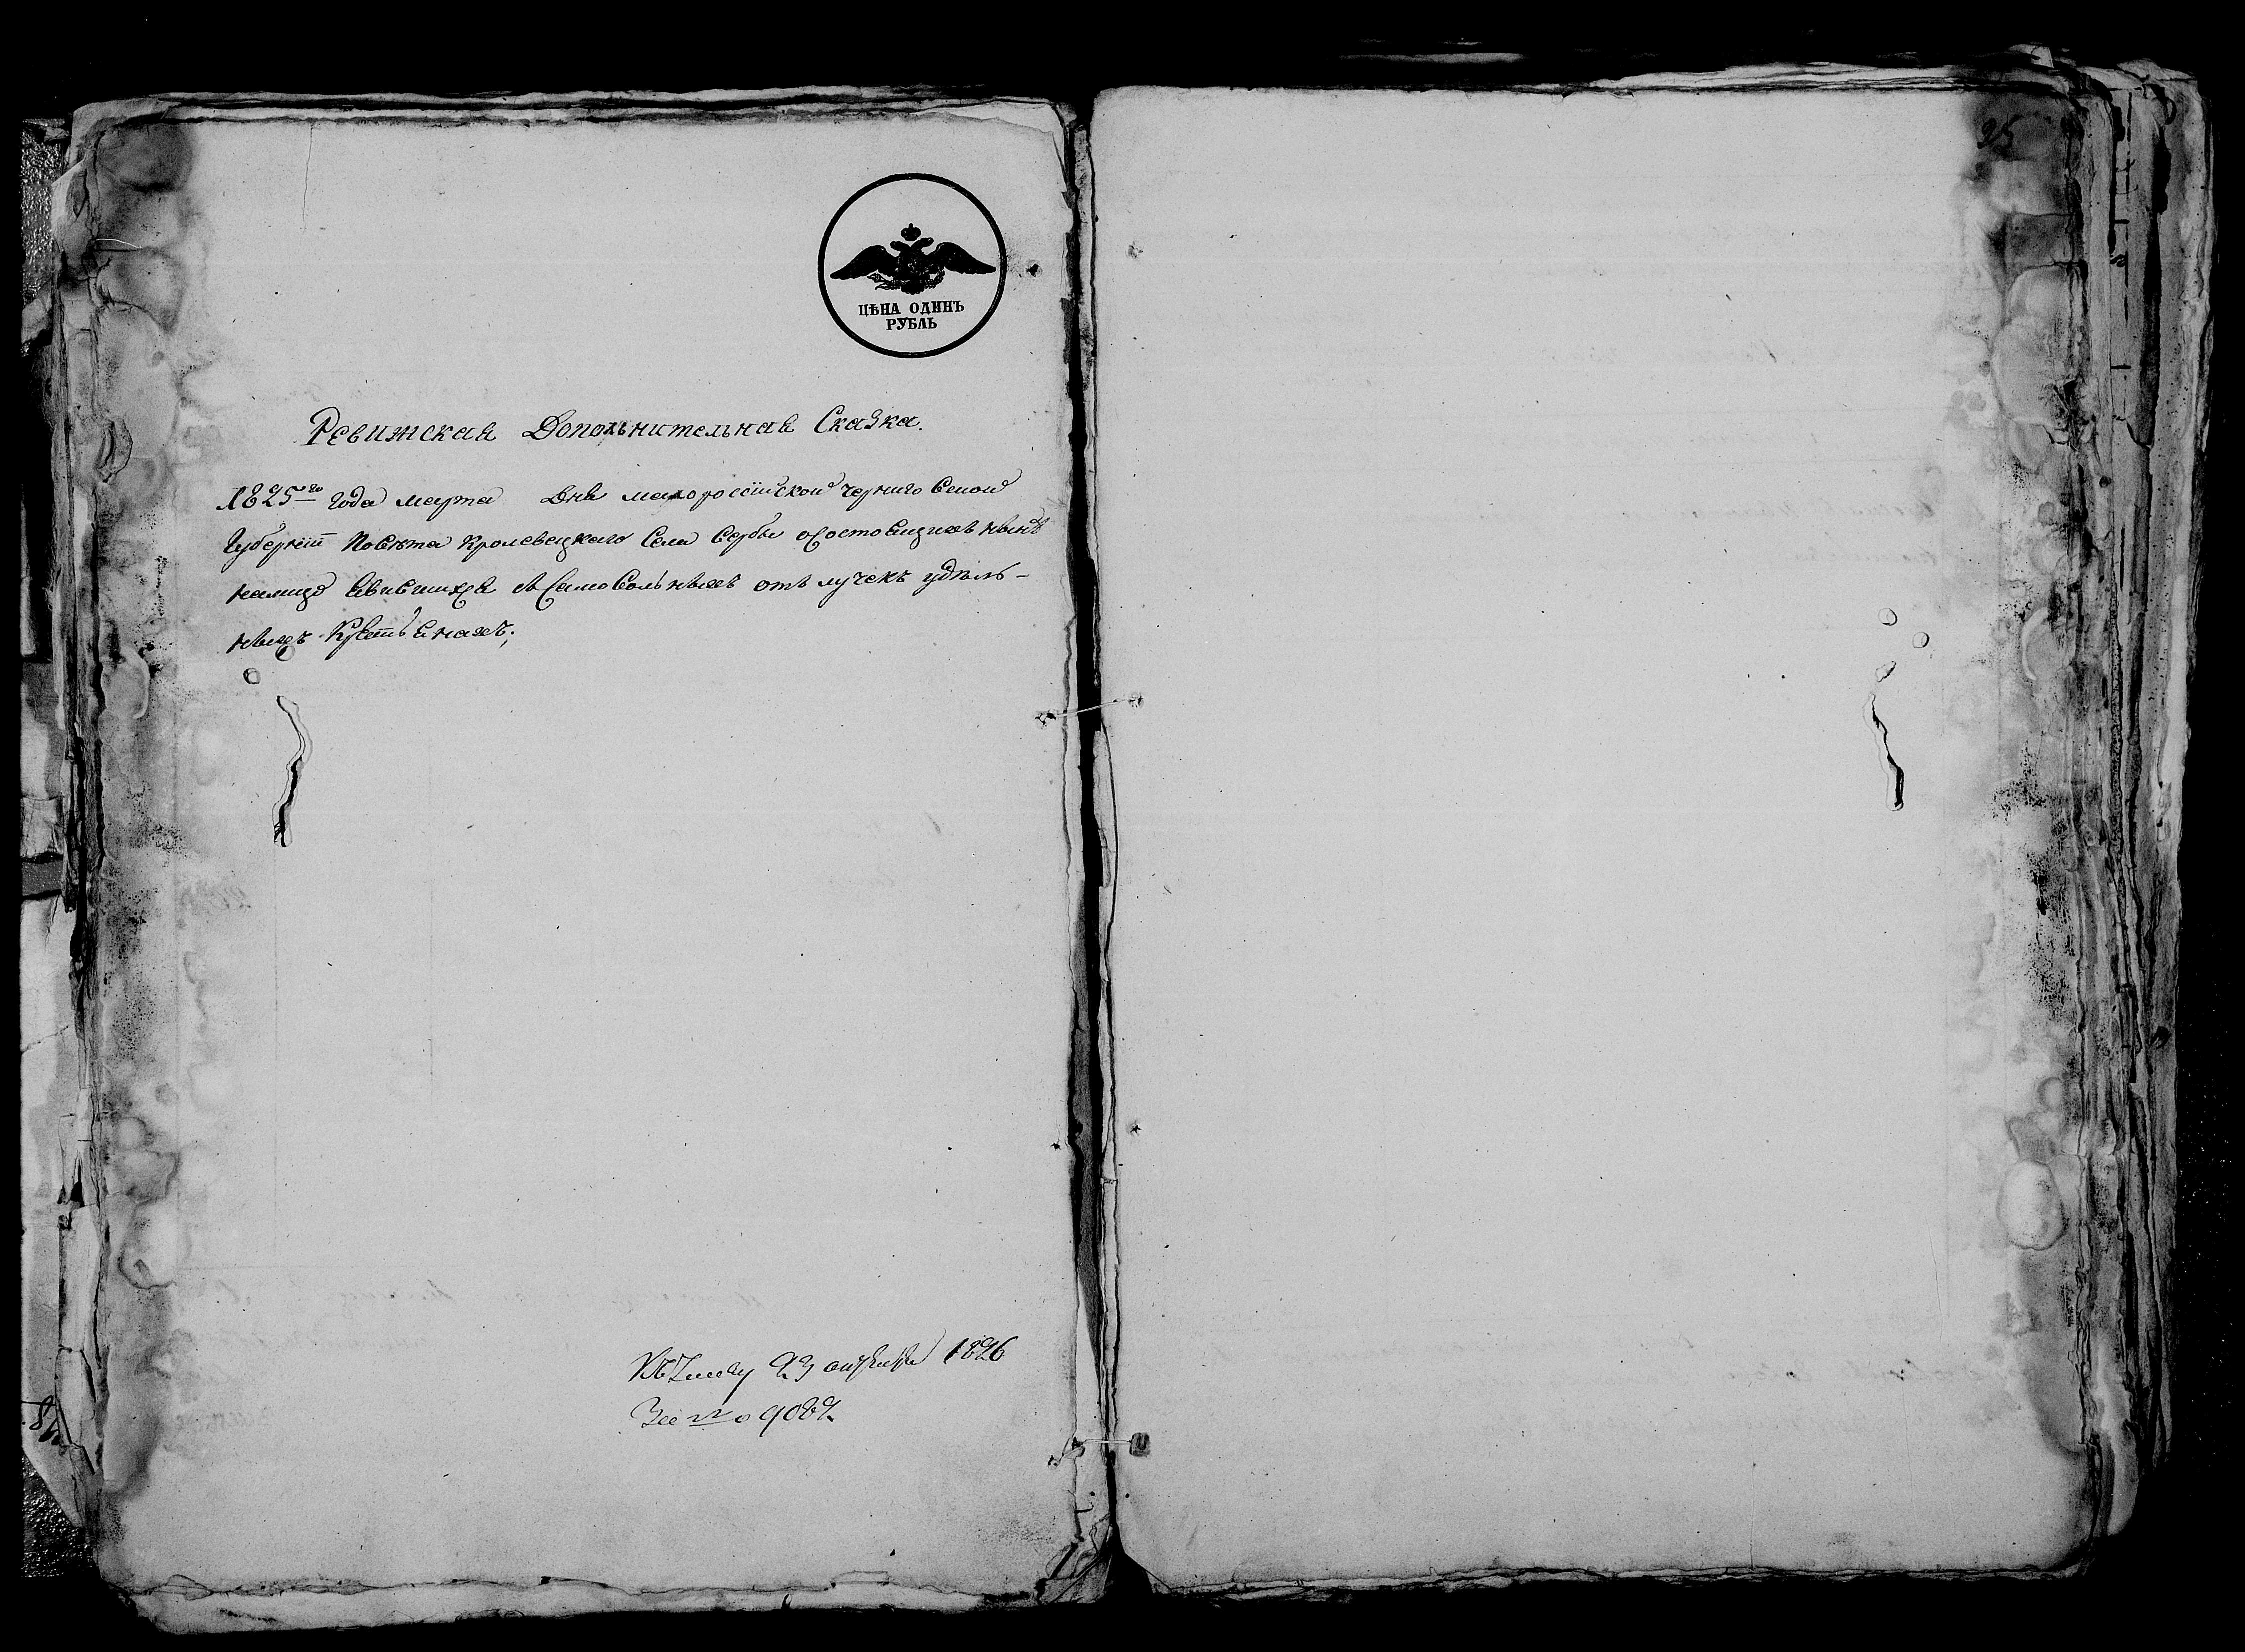 25
ЦѢНА ОДИНЪ
РУБЛЬ
Ревижская Дополнительная Сказка.
1825го года марта дня малороссійской черниговской
Губерніи Повѣта Кролевецкаго Села Сербы осостоящихъ нынѣ
налицо явившихся съ самовольныхъ отлучекъ удѣль-
ныхъ крестьянахъ;
23 1826
За № 9087.